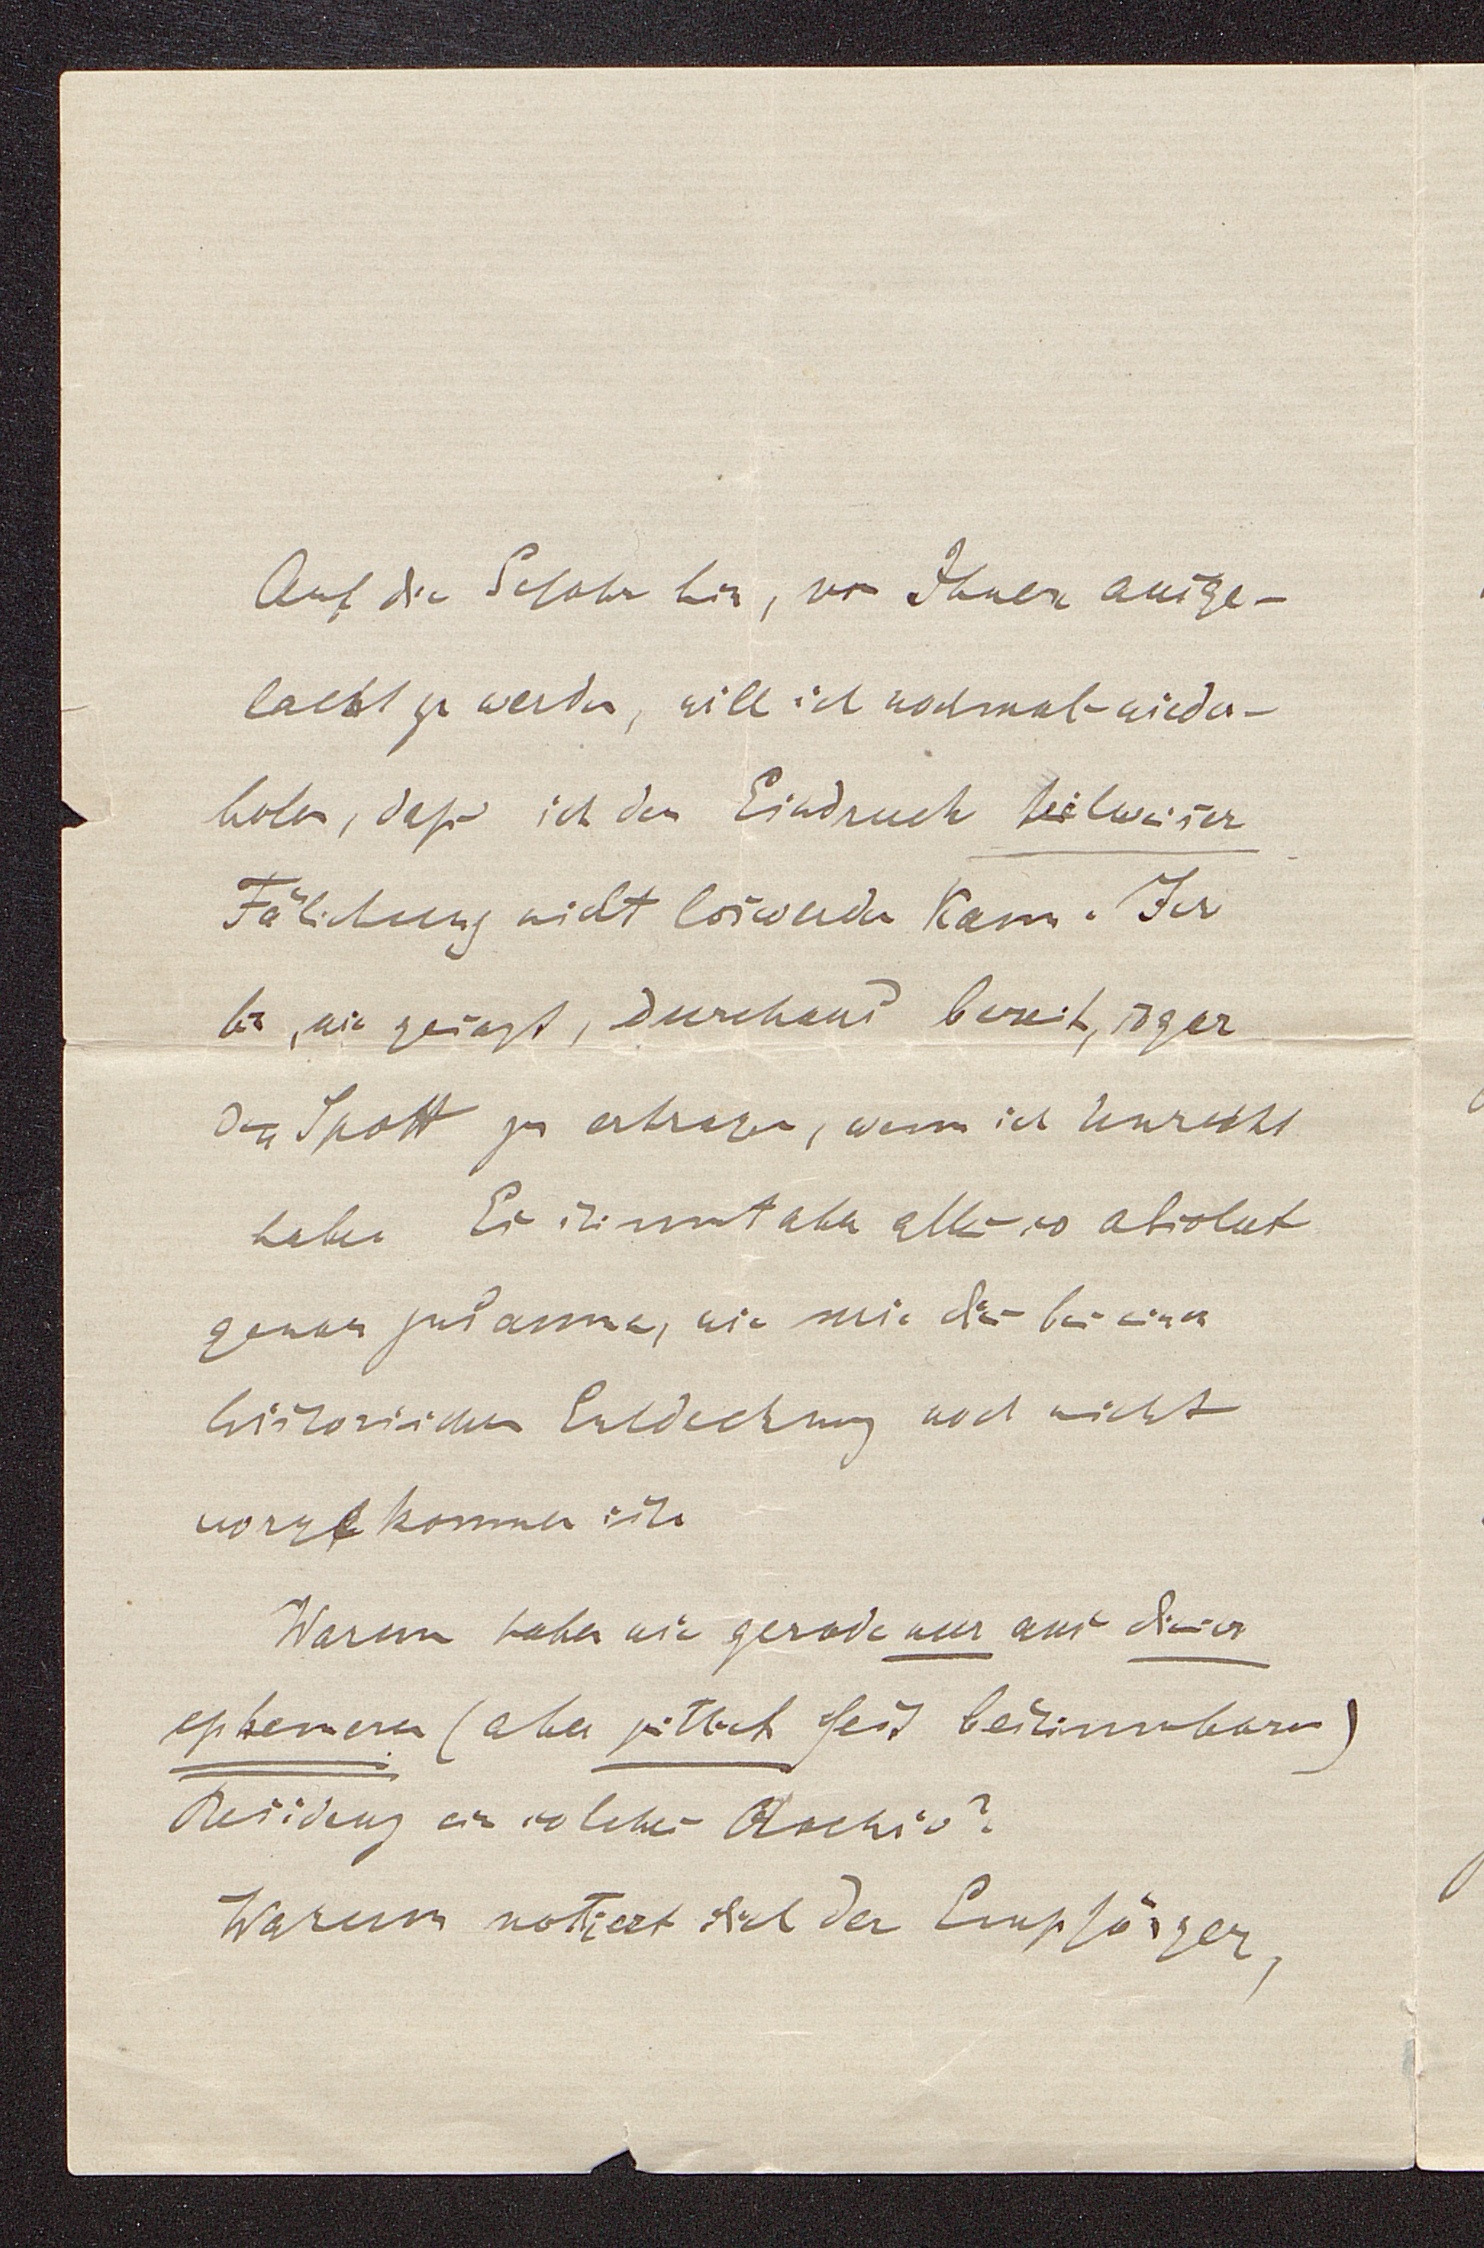 Auf die Gefahr hin, von Ihnen ausge-
lacht zu werden, will ich nochmals wieder-
holen, daß ich den Eindruck teilweiser
Fälschung nicht loswerden kann. Ich
bin, wie gesagt, durchaus bereit, sogar
den Spott zu ertragen, wenn ich Unrecht
habe. Es stimmt aber alles so absolut
genau zusammen, wie mir dies bei einer
historischen Entdeckung noch nicht
vorgekommen ist.
Warum haben wir gerade nur aus dieser
ephemeren (aber zeitlich fest bestimmbaren)
Residenz ein solches Archiv?
Warum notiert sich der Empfänger,